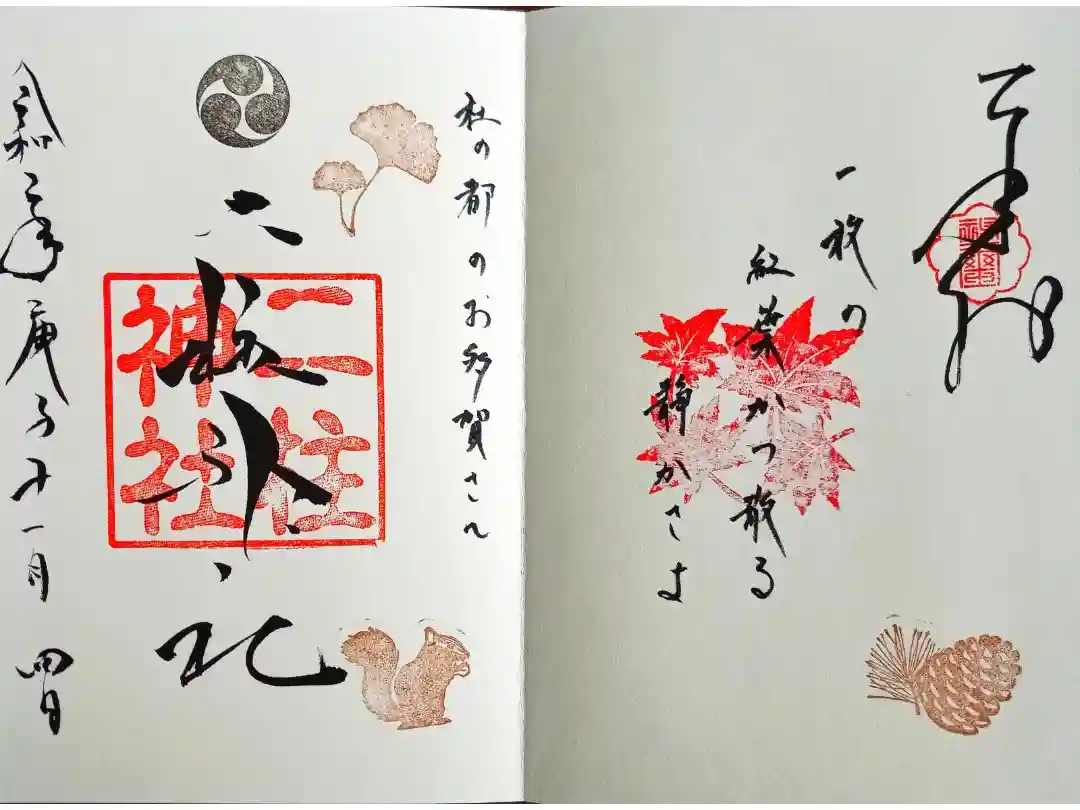 奉拝
一枚の
紅葉かつ散る
静かさよ
杜の都のお多賀さん
二柱神社
二柱
神社
令和二年庚子十一月四日